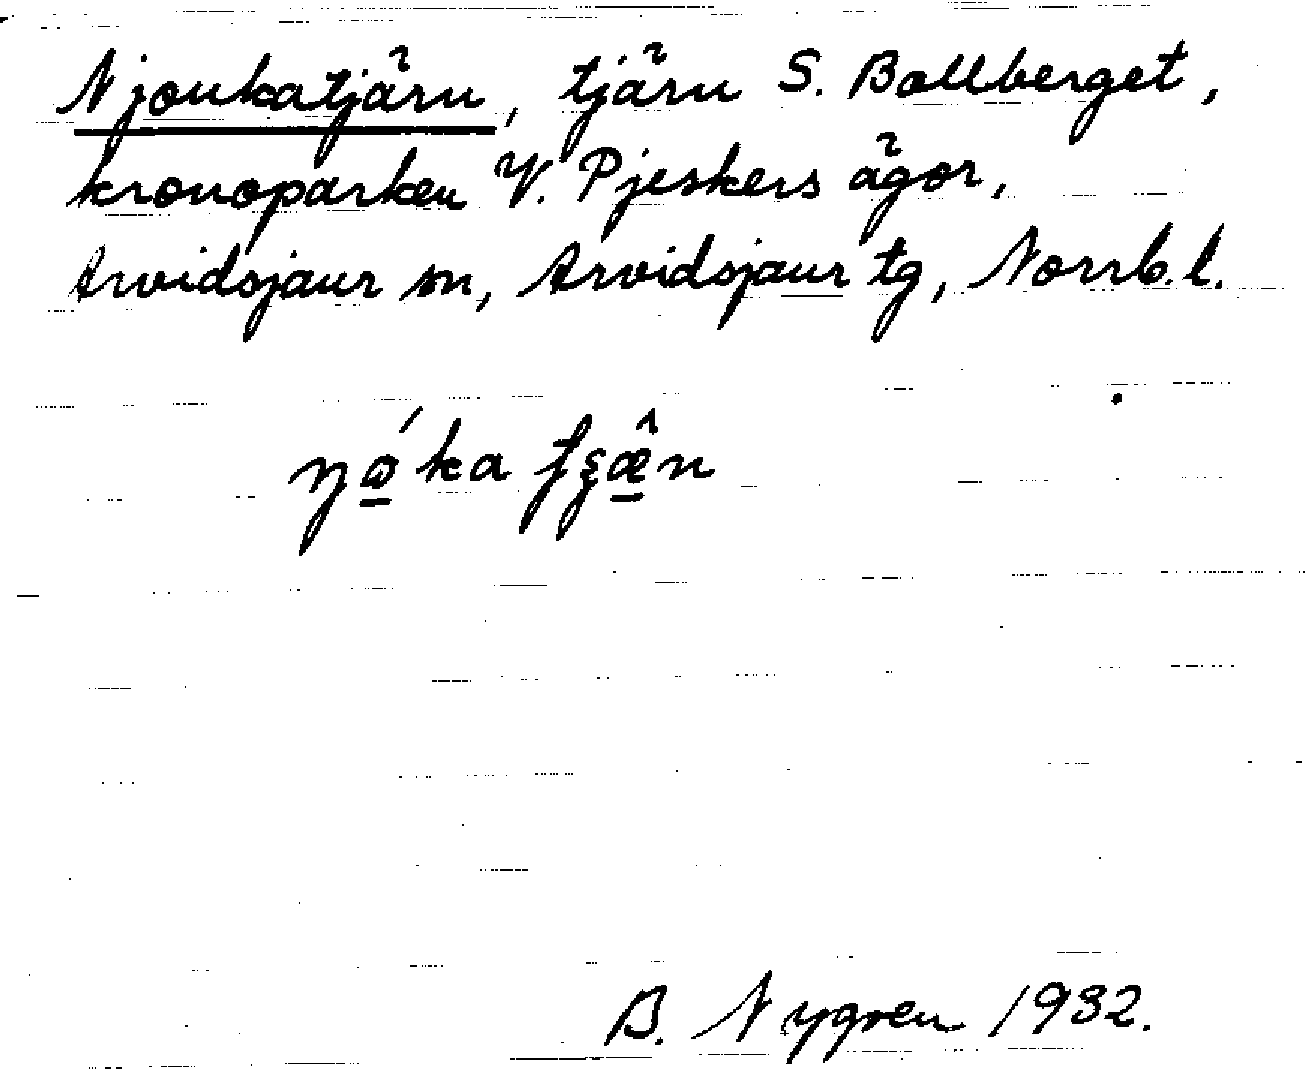 Njoukatjärn, tjärn S. Bollberget,
kronoparken V. Pjeskers ägor,
Arvidsjaur sn, Arvidsjaur tg, Norrb. l.
B. Nygren 1932.